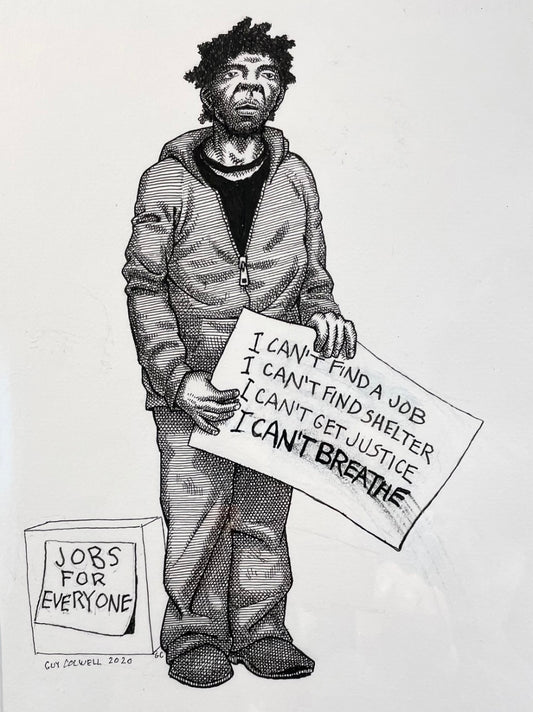 I CAN'T FIND A JOB
I CAN'T FIND SHELTER
I CAN'T GET JUSTICE
I CAN'T BREATHE
JOBS
FOR
EVERYONE
GC
GUY COLWELL 2020